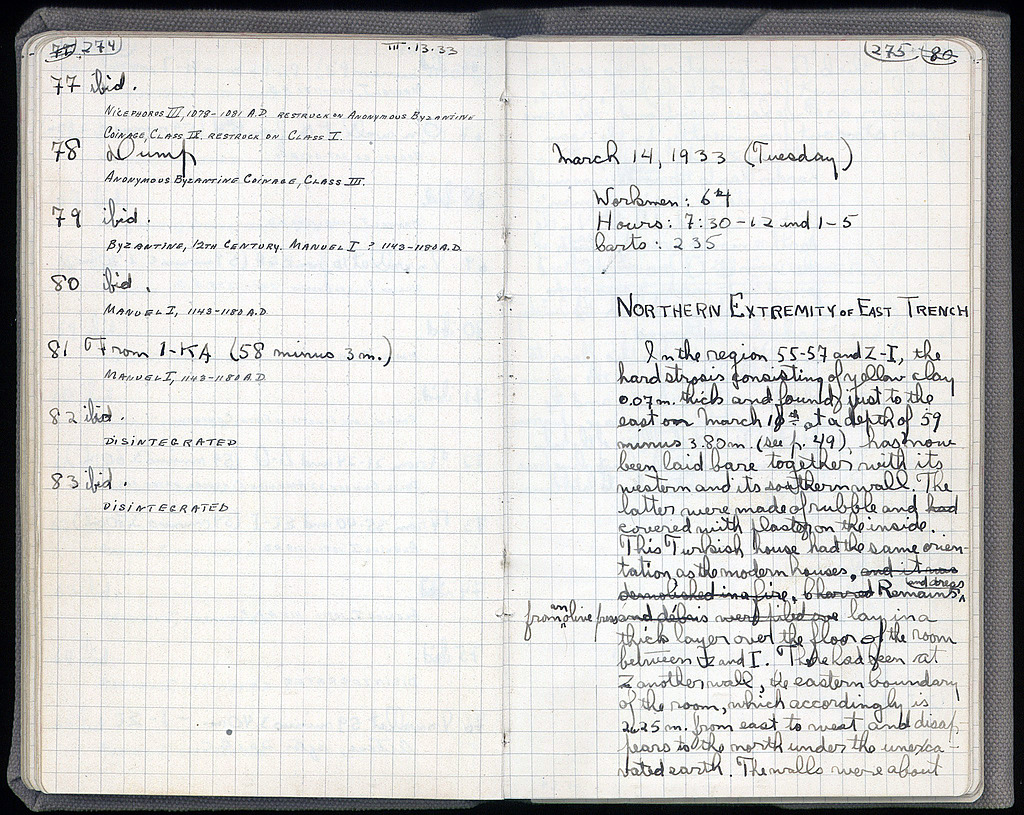 274
III.13.33
77 ibid.
NICEPHOROS III, 1078-1081 A.D. RESTRUCK ON ANONYMOUS BYZANTINE
COINAGE, CLASS IX. RESTRUCK ON CLASS I.
78 Dump
ANONYMOUS BYZANTINE COINAGE, CLASS III.
79 ibid.
BYZANTINE, 12TH CENTURY. MANUEL I ? 1143-1180 A.D.
80 ibid.
MANUEL I, 1143-1180 A.D.
81 From I-KA (58 minus 3 m.)
MANUEL I, 1143-1180 A.D.
82 ibid.
DISINTEGRATED
83 ibid.
DISINTEGRATED
275 80
March 14, 1933 (Tuesday)
Workmen: 64
Hours: 7:30-12 and 1-5
Carts: 235
NORTHERN EXTREMITY OF EAST TRENCH
In the region 55-57 and Z-I, the
hard strosis consisting of yellow clay
0.07 m. thick and found just to the
east on March 10th at a depth of 59
minus 3.80 m. (see p. 49), has now
been laid bare together with its
western and its southern wall. The
latter were made of rubble and had
covered with plaster on the inside.
This Turkish house had the same orien-
tation as the modern houses, and it was
and dregs
demolished in a fire. Charred Remains
from an olive press and débris were piled ove lay in a
thick layer over the floor of the room
between Z and I. There had been at
Z another wall, the eastern boundary
of the room, which accordingly is
2.25 m. from east to west and disap-
pears to the north under the unexca-
vated earth. The walls were about